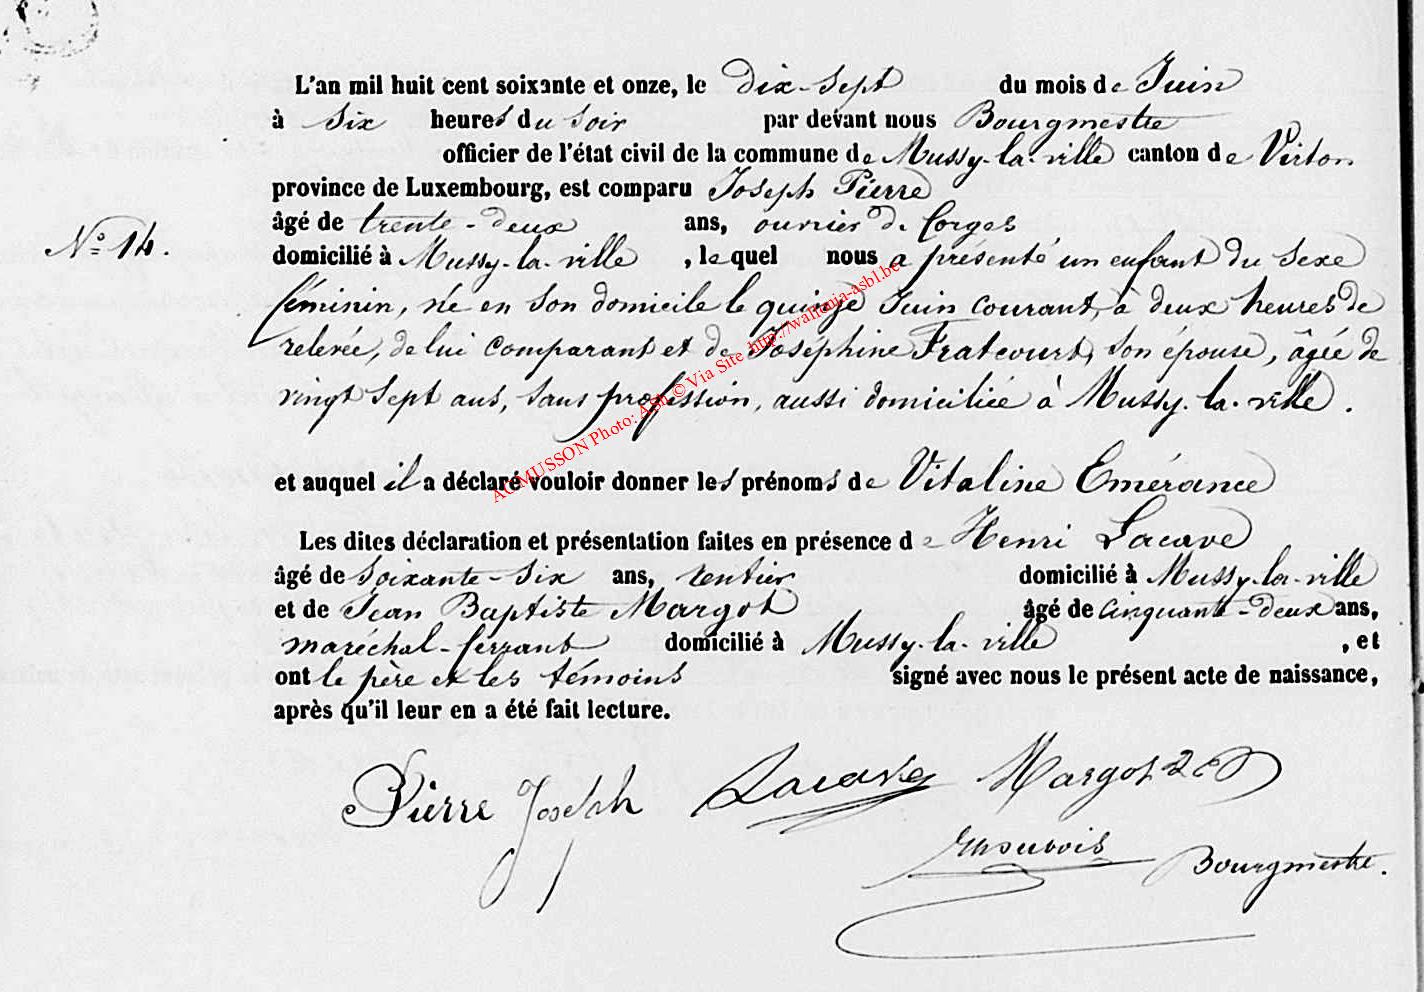 L'an mil huit cent soixante et onze, le Dix-Sept du mois de Juin
à Six heures du soir par devant nous Bourgmestre
officier de l'état civil de la commune de Mussy-la-ville canton de Virton
province de Luxembourg, est comparu Joseph Pierre
âgé de trente-deux ans, ouvrier de forges
N.º 14. domicilié à Mussy-la-ville, lequel nous a présenté un enfant du sexe
féminin, né en son domicile le quinze Juin courant, à deux heures de
relevée, de lui comparant et de Joséphine Fratcourt, son épouse, âgée de
vingt sept ans, sans profession, aussi domiciliée à Mussy-la-ville.
et auquel il a déclaré vouloir donner les prénoms de Vitaline Emérance
Les dites déclaration et présentation faites en présence de Henri Lacave
âgé de soixante-six ans, rentier domicilié à Mussy-la-ville
et de Jean Baptiste Margot âgé de cinquante-deux ans,
maréchal-ferrant domicilié à Mussy-la-ville, et
ont le père et les témoins signé avec nous le présent acte de naissance,
après qu'il leur en a été fait lecture.
Pierre Joseph Lacave Margot
Bourgmestre.
AC MUSSON Photo: ASh © Via Site http://wallonia-asbl.be